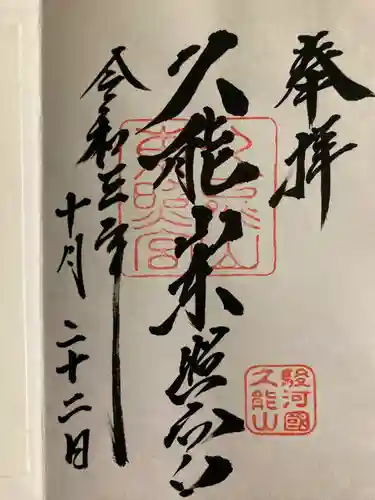 奉拝
久能山東照宮
令和三年
十月二十二日
久能山東照宮
駿河國
久能山